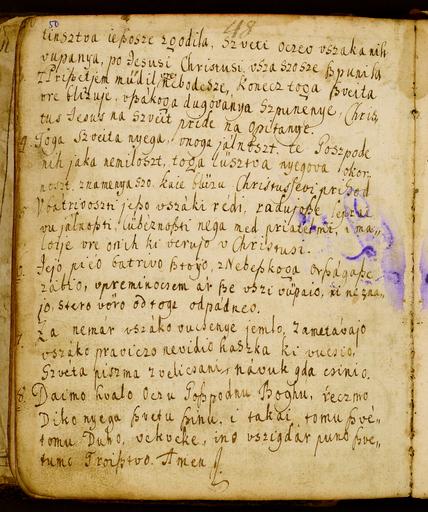 50
48
tinsztva leposze zgodila, Szveti Oczev vszaka nih
vupanya, po Jesusi Christusi, vsza szosze spunila
Z Pripetjem mudil nebodesze, Konecz toga szveita
vre blizuje, vsákoga dugovanya Szpunenye, Chris
tus Jesus na Szveit pride na opitanye.
4. Toga Szveita nyega, vnoga jálnoszt, te Goszpode
nih jaka nemiloszt, toga lűsztva nyegova
noszt, znamenya szo, kaie blűzu Christussevi prihod
V batrivoszti jeszo vszáki rédi, radujose
vu jálnoszti, lűbéznoszti nega med priátelmi, i ma-
lo je vre onih ki verujo v Christusi.
6. Jejo pred batrivo sztojo, z Nebeszkoga
zablo, vpremínocsem ár sze vszi vupaio, ki ne zna-
jo, stero vöro od toga odpádneo.
7. Za nemar vszáko vucsenye jemlo, zametávajo
vszáko praviczo nevidio haszka ki vucsio,
Szveta piszma zvelicsani, návuk gda csinio.
8. Daimo hvalo Oczu Goszpodnu Boghu, reczmo
Diko nyega szvetu Szinu, i takai tomu szvé-
tomu Duho, vekveke, ino vszigdar puno szve-
tume Troisztvo. Amen